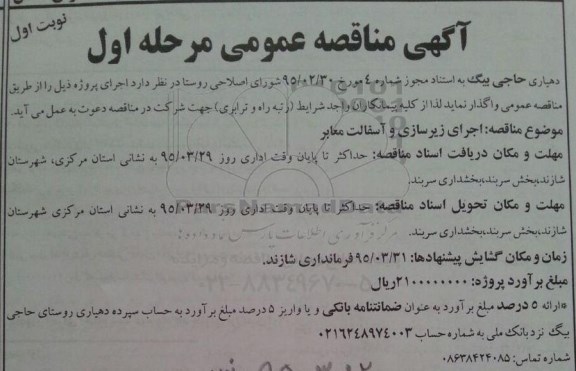 نوبت اول
آگهی مناقصه عمومی مرحله اول
دهیاری حاجی بیگ به استناد مجوز شماره ٤ مورخ ٩٥/٠٢/٣٠ شورای اصلاحی روستا در نظر دارد اجرای پروژه ذیل را از طریق
مناقصه عمومی واگذار نماید لذا از کلیه پیمانکاران واجد شرایط (رتبه راه و ترابری) جهت شرکت در مناقصه دعوت به عمل می آید.
موضوع مناقصه: اجرای زیرسازی و آسفالت معابر
مهلت و مکان دریافت اسناد مناقصه: حداکثر تا پایان وقت اداری روز ٩٥/٠٣/٢٩ به نشانی استان مرکزی، شهرستان
شازند،بخش سربند،بخشداری سربند.
مهلت و مکان تحویل اسناد مناقصه: حداکثر تا پایان وقت اداری روز ٩٥/٠٣/٢٩ به نشانی استان مرکزی شهرستان
شازند،بخش سربند،بخشداری سربند.
زمان و مکان گشایش پیشنهادها: ٩٥/٠٣/٣١ فرمانداری شازند.
مبلغ برآورد پروژه: ٢١٠٠٠٠٠٠٠٠ریال
*ارائه ٥ درصد مبلغ برآورد به عنوان ضمانتنامه بانکی و یا واریز ٥ درصد مبلغ برآورد به حساب سپرده دهیاری روستای حاجی
بیگ نزد بانک ملی به شماره حساب ٠٢١٦٢٤٨٩٧٤٠٠٣
شماره تماس: ٠٨٦٣٨٤٢٤٠٨٥